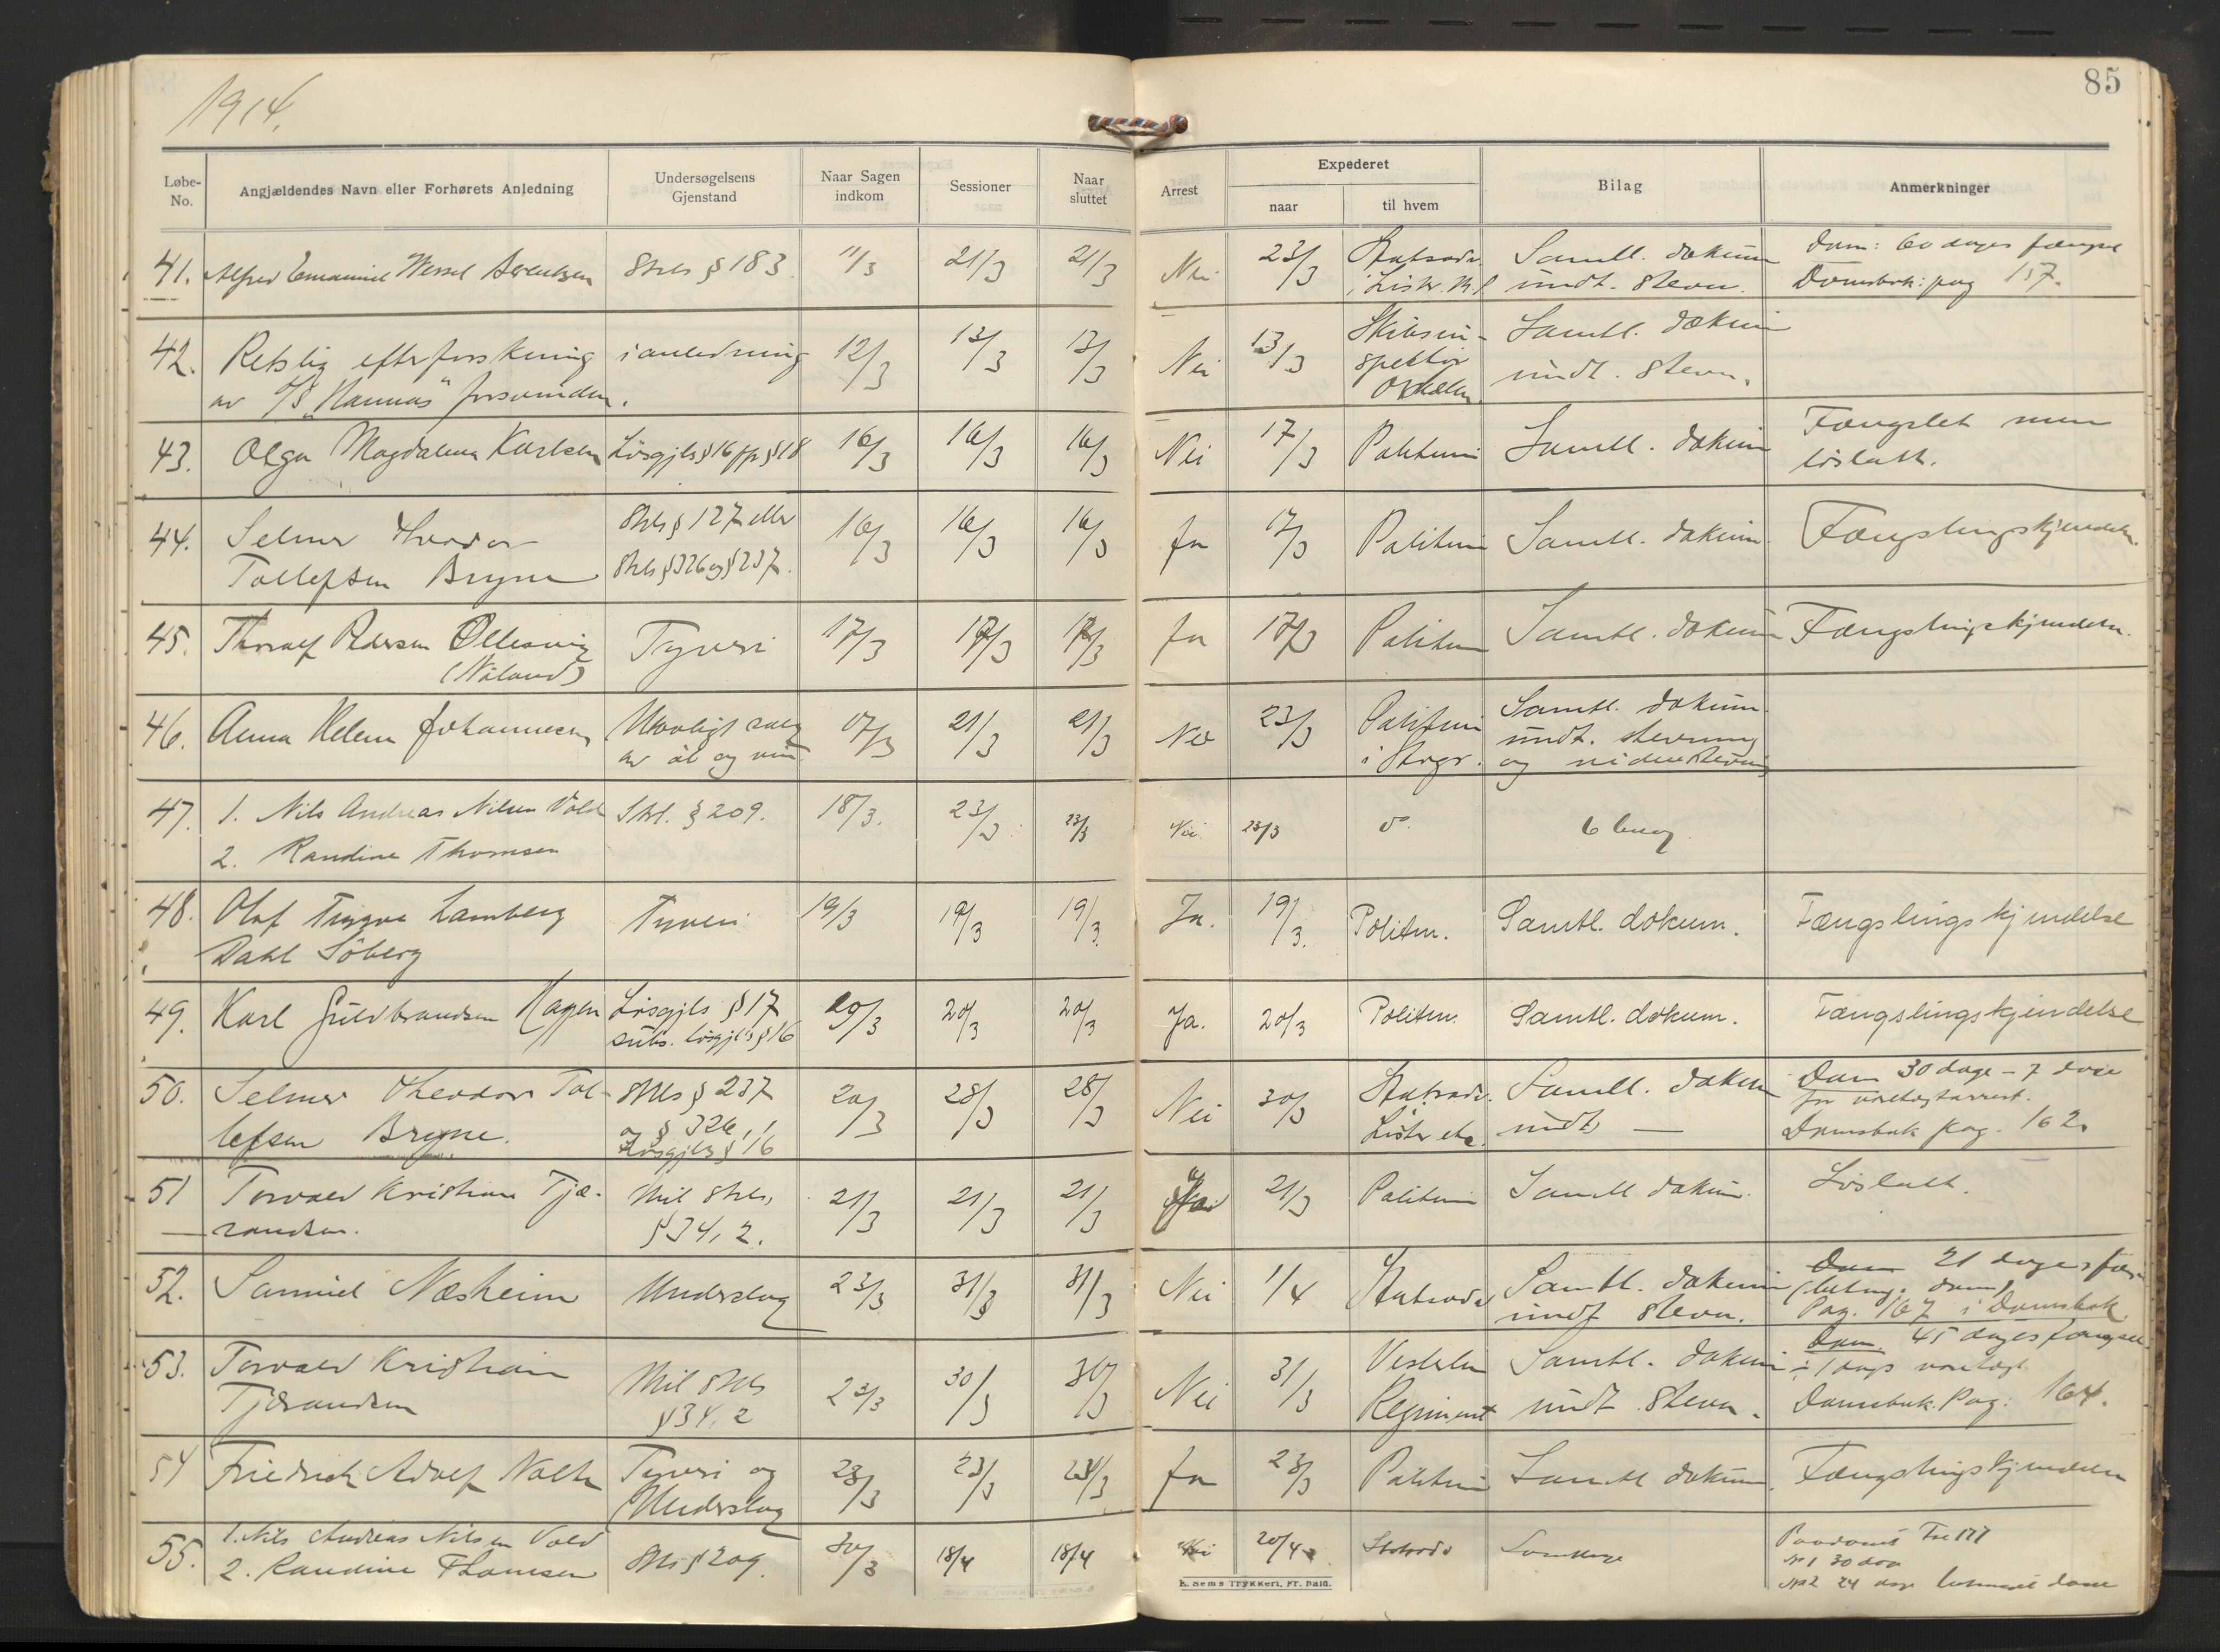 1914.
85
Løbe-No.
Angjældendes Navn eller Forhørets Anledning
Undersøgelsens Gjenstand
Naar Sagen indkom
Sessioner
Naar sluttet
Arrest
Expederet
naar
til hvem
Bilag
Anmerkninger
41. Alfred Emanuel Wessel Berentzen Strls § 183. 11/3 21/3 21/3 Nei 23/3 Statsadv. Samtl. dokum Dom: 60 dages fængsel
i List. undt. stevn. Domsbok: pag 157.
42. Retslig efterforskning i anledning 12/3 13/3 13/3 Nei 13/3 Skibsin- Samtl. dokum
av "Hannas" forsvinden. spektør undt. stevn.
43. Olga Magdalena Karlsen Løsgjls § 16 jfr § 18 16/3 16/3 16/3 Nei 17/3 Politim Samtl. dokum Fængslet men
løslatt.
44. Selmer Theodor Strls § 127 eller 16/3 16/3 16/3 Ja 17/3 Politim Samtl. dokum. Fængslingskjendelse.
Tollefsen Bryne Strls § 326 og § 237.
45. Thoralf Pedersen Ollestvig Tyveri 17/3 17/3 17/3 Ja 17/3 Politim Samtl. dokum Fængslingskjendelse.
(Nåland)
46. Anna Helene Johannesen Ulovligt salg 17/3 21/3 21/3 Nei 23/3 Politim Samtl. dokum.
av øl og vin i Stvgr. undt. stevning
og
47. 1. Nils Andreas Nilsen Vold Strl. § 209. 18/3. 23/3 23/3 Nei 23/3 do. 6 bilag
2. Randine Thomsen
48. Olaf Trygve Lamberg Tyveri 19/3 19/3 19/3. Ja. 19/3. Politim. Samtl. dokum. Fængslingskjendelse
Dahl Söberg
49. Karl Guldbrandsen Hagen Løsgjls § 17 20/3 20/3 20/3 Ja. 20/3 Politim. Samtl. dokum. Fængslingskjendelse
subs. løsgjls § 16
50. Selmer Theodor Tol- Strls § 237 20/3 28/3 28/3 Nei 30/3 Statsadv. Samtl. dokum Dom 30 dage - 7 dage
lefsen Bryne. og § 326, 1 Lister etc. undt — for varetægtsarrest.
Løsgjls § 16 Domsbok pag. 162.
51 Torvald Kristian Tjæ- Mil strls, 21/3 21/3 21/3 Ja 21/3 Politim Samtl dokum. Løslatt.
randsen. § 34, 2.
52. Samuel Næsheim Underslag 23/3 31/3 31/3 Nei 1/4 Statsadv Samtl. dokum Dom 21 dages fæng-
undt stevn. (beting. dom)
Pag. 167 i Domsbok.
53. Torvald Kristian Mil strls 23/3 30/3 30/3 Nei 31/3 Vesterlen Samtl. dokum Dom. 45 dages fængsel
Tjærandsen § 34, 2 Regiment undt stevn. ÷ 1 dags varetægt
Domsbok. Pag: 164.
54 Friedrich Adolf Nolte Tyveri og 23/3 23/3 23/3 Ja 23/3 Politim Samtl dokum. Fængslingskjendelse
Underslag
55. 1. Nils Andreas Nilsen Vold Strls § 209. 30/3 18/4 18/4 Nei 20/4 Statsadv Samtlige
2. Randine Thomsen No 1 30 dage
No 2 24 dage betinget dom
E. Sems Trykkeri, Fr. hald.